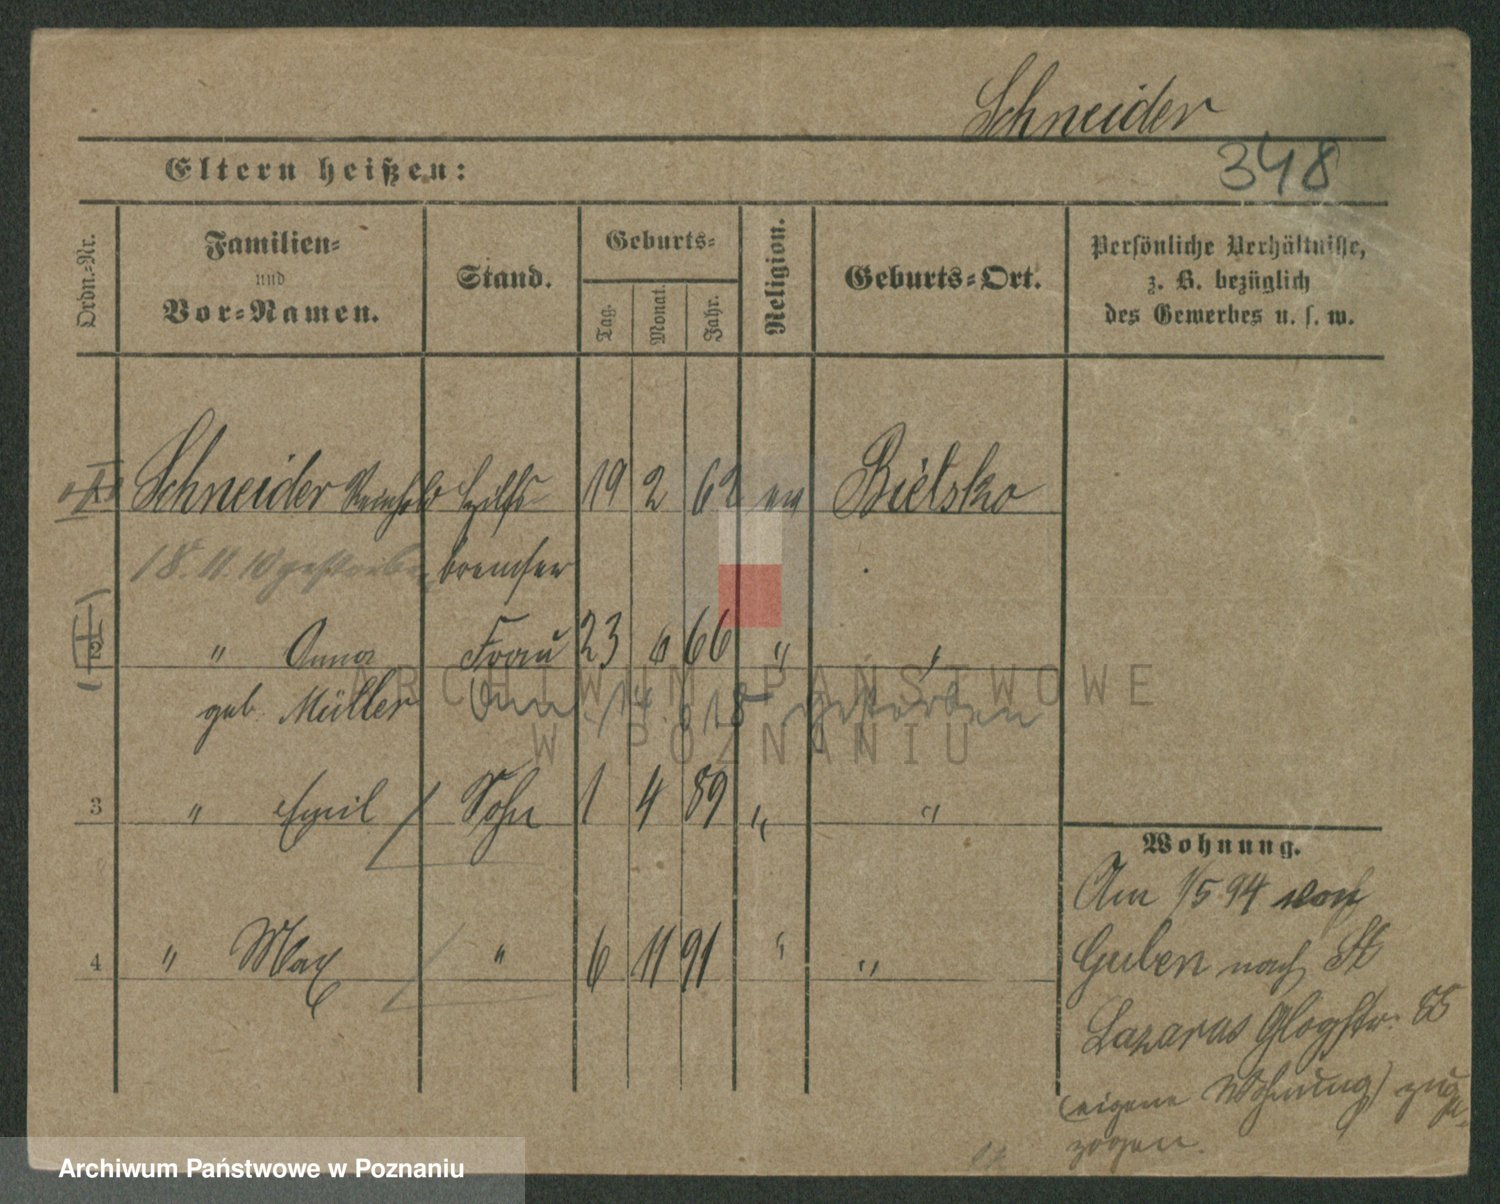 Schneider
348
Eltern heißen:
Ordn.-Nr.
Familien-
und
Vor-Namen.
Stand.
Geburts-
Tag.
Monat.
Jahr.
Religion.
Geburts-Ort.
Persönliche Verhältnisse,
z. B. bezüglich
des Gewerbes u. s. w.
Schneider Reinhold Hilfs- 19 2 62 ev Bielsko
18.11.10 gestorben bremser
" Anna Frau 23 6 66 " "
geb. Müller Am 14. 18 gestorben
3 " Emil Sohn 1 4 89 " "
4 " Max " 6 11 91 " "
Wohnung.
Am 1/5 94 von
Guben nach St
Lazarus Glogstr. 85
(eigene Wohnung) zuge-
zogen.
ARCHIWUM PAŃSTWOWE
W POZNANIU
Archiwum Państwowe w Poznaniu